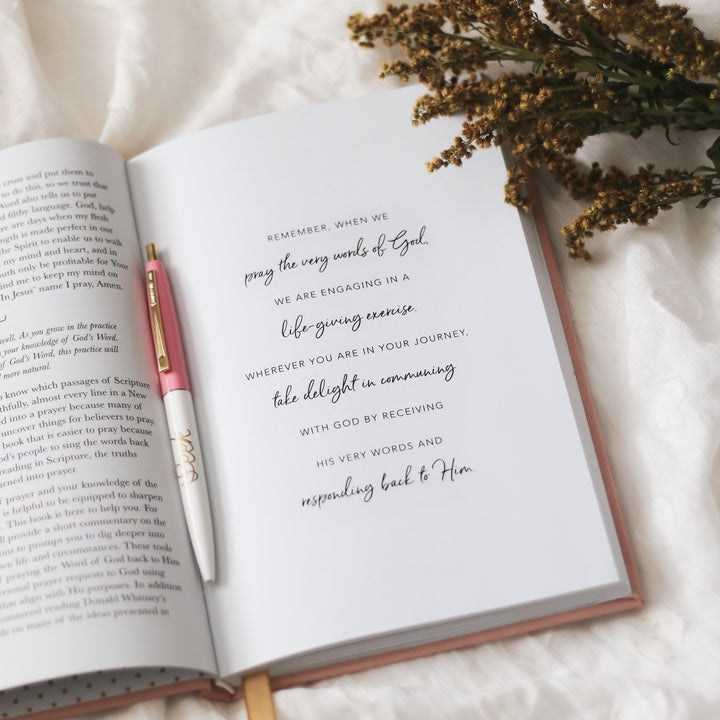 cross and put them to
to do this, so we trust that
Word also tells us to put
filthy language. God, help
are days when my flesh
is made perfect in our
the Spirit to enable us to walk
my mind and heart, and in
only be profitable for Your
me to keep my mind on
In Jesus' name I pray, Amen.
well. As you grow in the practice
your knowledge of God's Word,
of God's Word, this practice will
more natural.
know which passages of Scripture
almost every line in a New
into a prayer because many of
uncover things for believers to pray.
book that is easier to pray because
people to sing the words back
reading in Scripture, the truths
turned into prayer.
prayer and your knowledge of the
is helpful to be equipped to sharpen
This book is here to help you. For
provide a short commentary on the
to prompt you to dig deeper into
own life and circumstances. These tools
praying the Word of God back to Him
prayer requests to God using
that align with His purposes. In addition
reading Donald Whitney's
on many of the ideas presented in
Seek
REMEMBER, WHEN WE
pray the very words of God,
WE ARE ENGAGING IN A
life-giving exercise.
WHEREVER YOU ARE IN YOUR JOURNEY,
take delight in communing
WITH GOD BY RECEIVING
HIS VERY WORDS AND
responding back to Him.